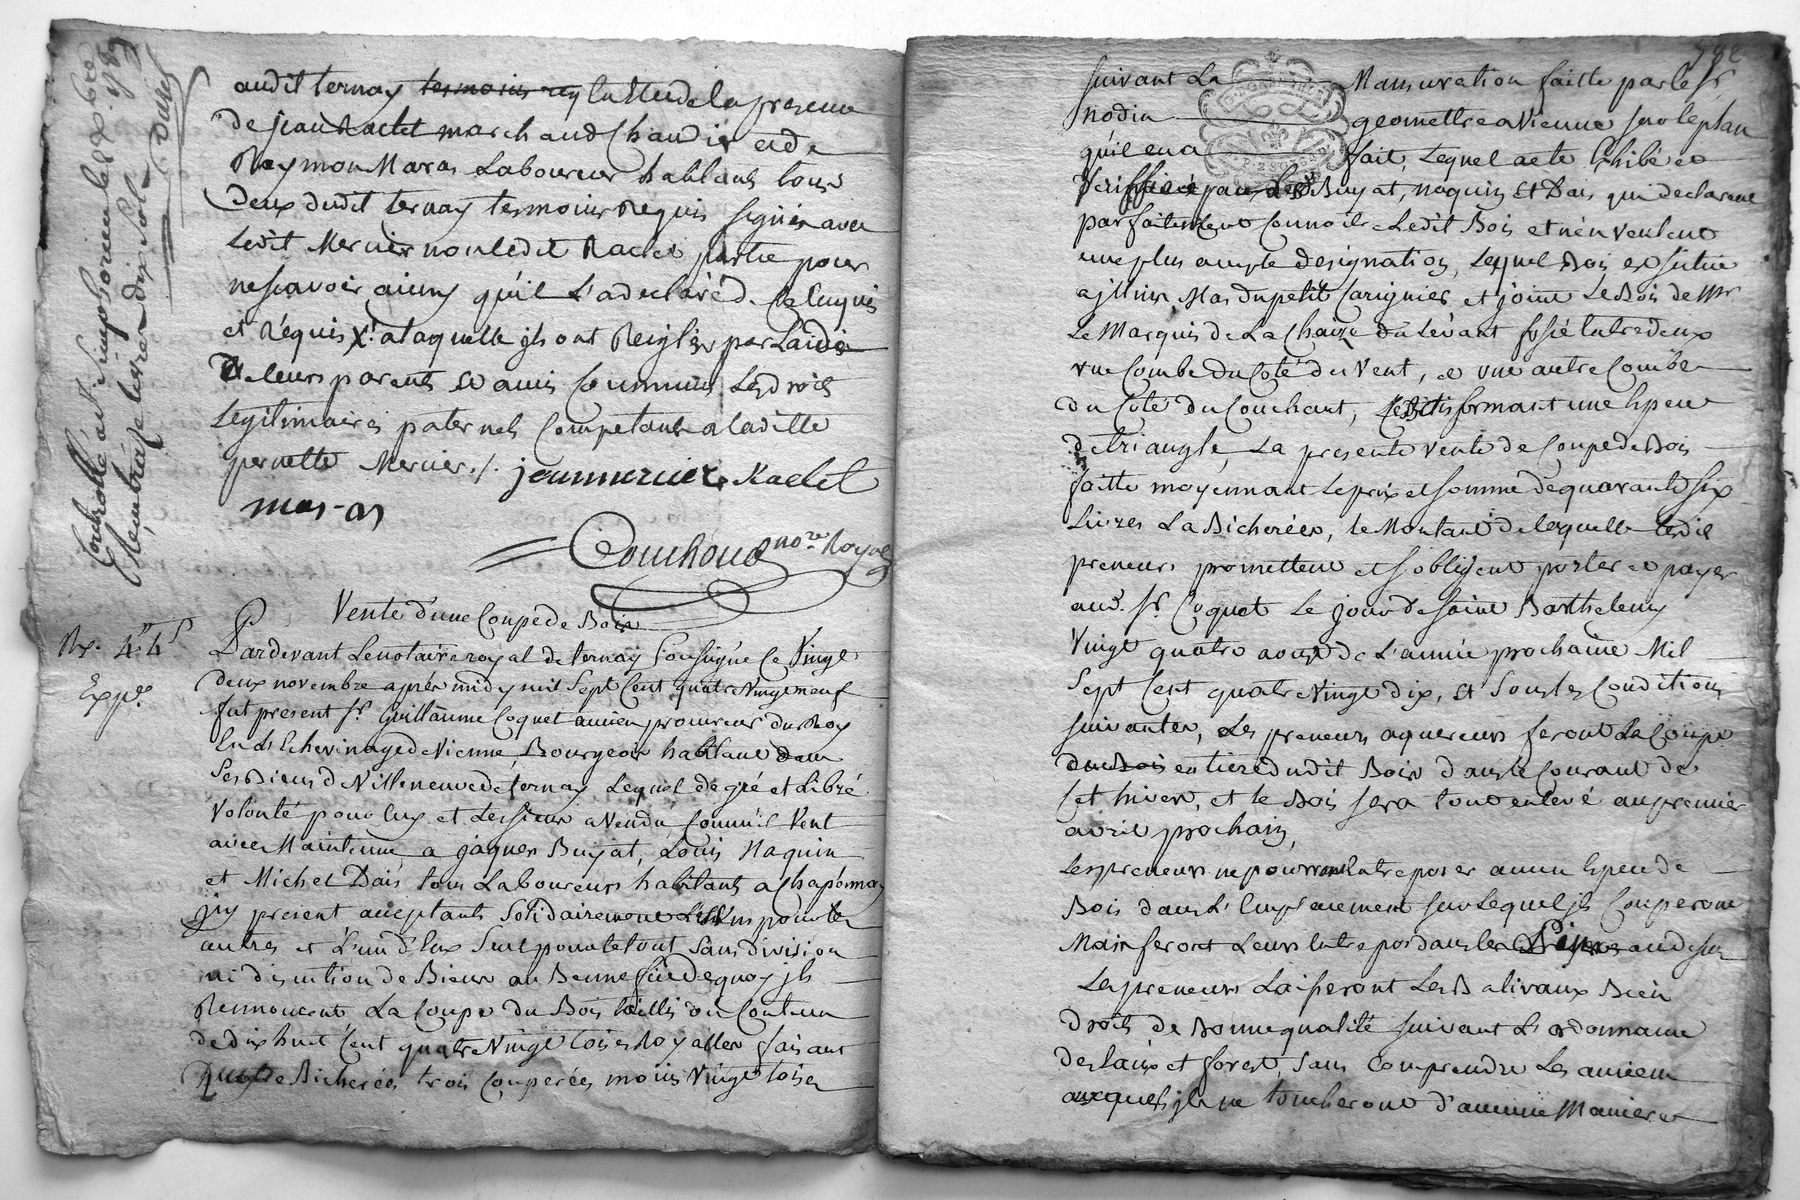 Controllé a St Simphorien le 4 Xbre 1789
audit ternay lecture de la presence
de jean Raclet marchand Chandier et de
Reymon Maras Laboureur habitants tous
deux dudit ternay temoins Requis signés avec
Ledit Mercier non ledit Raclet partie pour
ne scavoir ainsy qu'il L'a declaré d. Ce Enquis
et Réquis X.t a laquelle jls ont Reiglés par Laide
de leurs parents et amis Communs Les droits
Legitimaires paternels Competants a laditte
pernette Mercier ./. jean mercier Raclet
maras
Couchoud no.re Royal
Vente d'une Coupe de Bois
Pardevant Le notaire royal de ternay soussigné Ce Vingt
deux novembre après midy mil Sept Cent quatre Vingt neuf
fut present Sr. Guillaume Coquet ancien procureur du Roy
En L'Echevinage de Vienne, Bourgeois habitant dans
Ses Biens de Villeneuve de ternay Lequel de gré et Libre
Volonté pour luy et Les siens a Vendu, Comm'il Vent
avec Maintenue, a jâques Buyat, Louis Naquin
et Michel Dais tous Laboureurs habitants a Chaponnay
jcy present acceptants Solidairement L'un pour les
autres et L'un d'Eux Seul pour le tout Sans division
ni discution de Biens au Bennefice de quoy jls
Rennoncent La Coupe du Bois taillis de Contenu
de dix huit Cent quatre Vingt toises Royalles faisant
quatre Bicherées trois Couperées moins Vingt toises
Rx. 4.# 4.s
Exp.é
592
suivant La Mansuration faitte par le Sr
Nodin geomettre a Vienne sur le plan
qu'il en a fait, Lequel acte Exhibé et
Veriffié par Les Buyat, Naquin et Dais, qui declarent
parfaitement Connoitre Ledit Bois et n'en Veulent
une plus ample designation, Lequel Bois est situé
a jllins Mas du petit Carignier et joint Le Bois de Mr
Le Marquis de La Chaize du Levant fossé Entre deux
vne Combe du Coté du Vent, et vne autre Combe
du Coté du Couchant, formant une Espece
de triangle, La presente Vente de Coupe de Bois
faitte moyennant Le prix et somme de quarante six
Livres La Bicherées, le Montant de laquelle Lesdit
preneurs promettent et s'obligent porter et payer
aud. Sr. Coquet Le jour de Saint Barthelemy
Vingt quatre aoust de L'année prochaine Mil
Sept Cent quatre Vingt dix, Et Sous les Conditions
suivantes, Les preneurs aquereurs feront La Coupe
du Bois entiere dudit Bois dans le Courant de
Cet hiver, et le Bois sera tout enlevé au premier
avril prochain,
Les preneurs ne pourront Entreposer aucun Espece de
Bois dans L'Emplacement sur Lequel jls Couperont
Mais feront Leurs Entrepos dans les au dessus
Les preneurs Laisseront Les Balivaux Bien
droits de Bonne qualité suivant L'ordonnance
des Eaux et forest, Sans Comprendre Les anciens
auxquels jls ne toucheront d'aucune Manieres